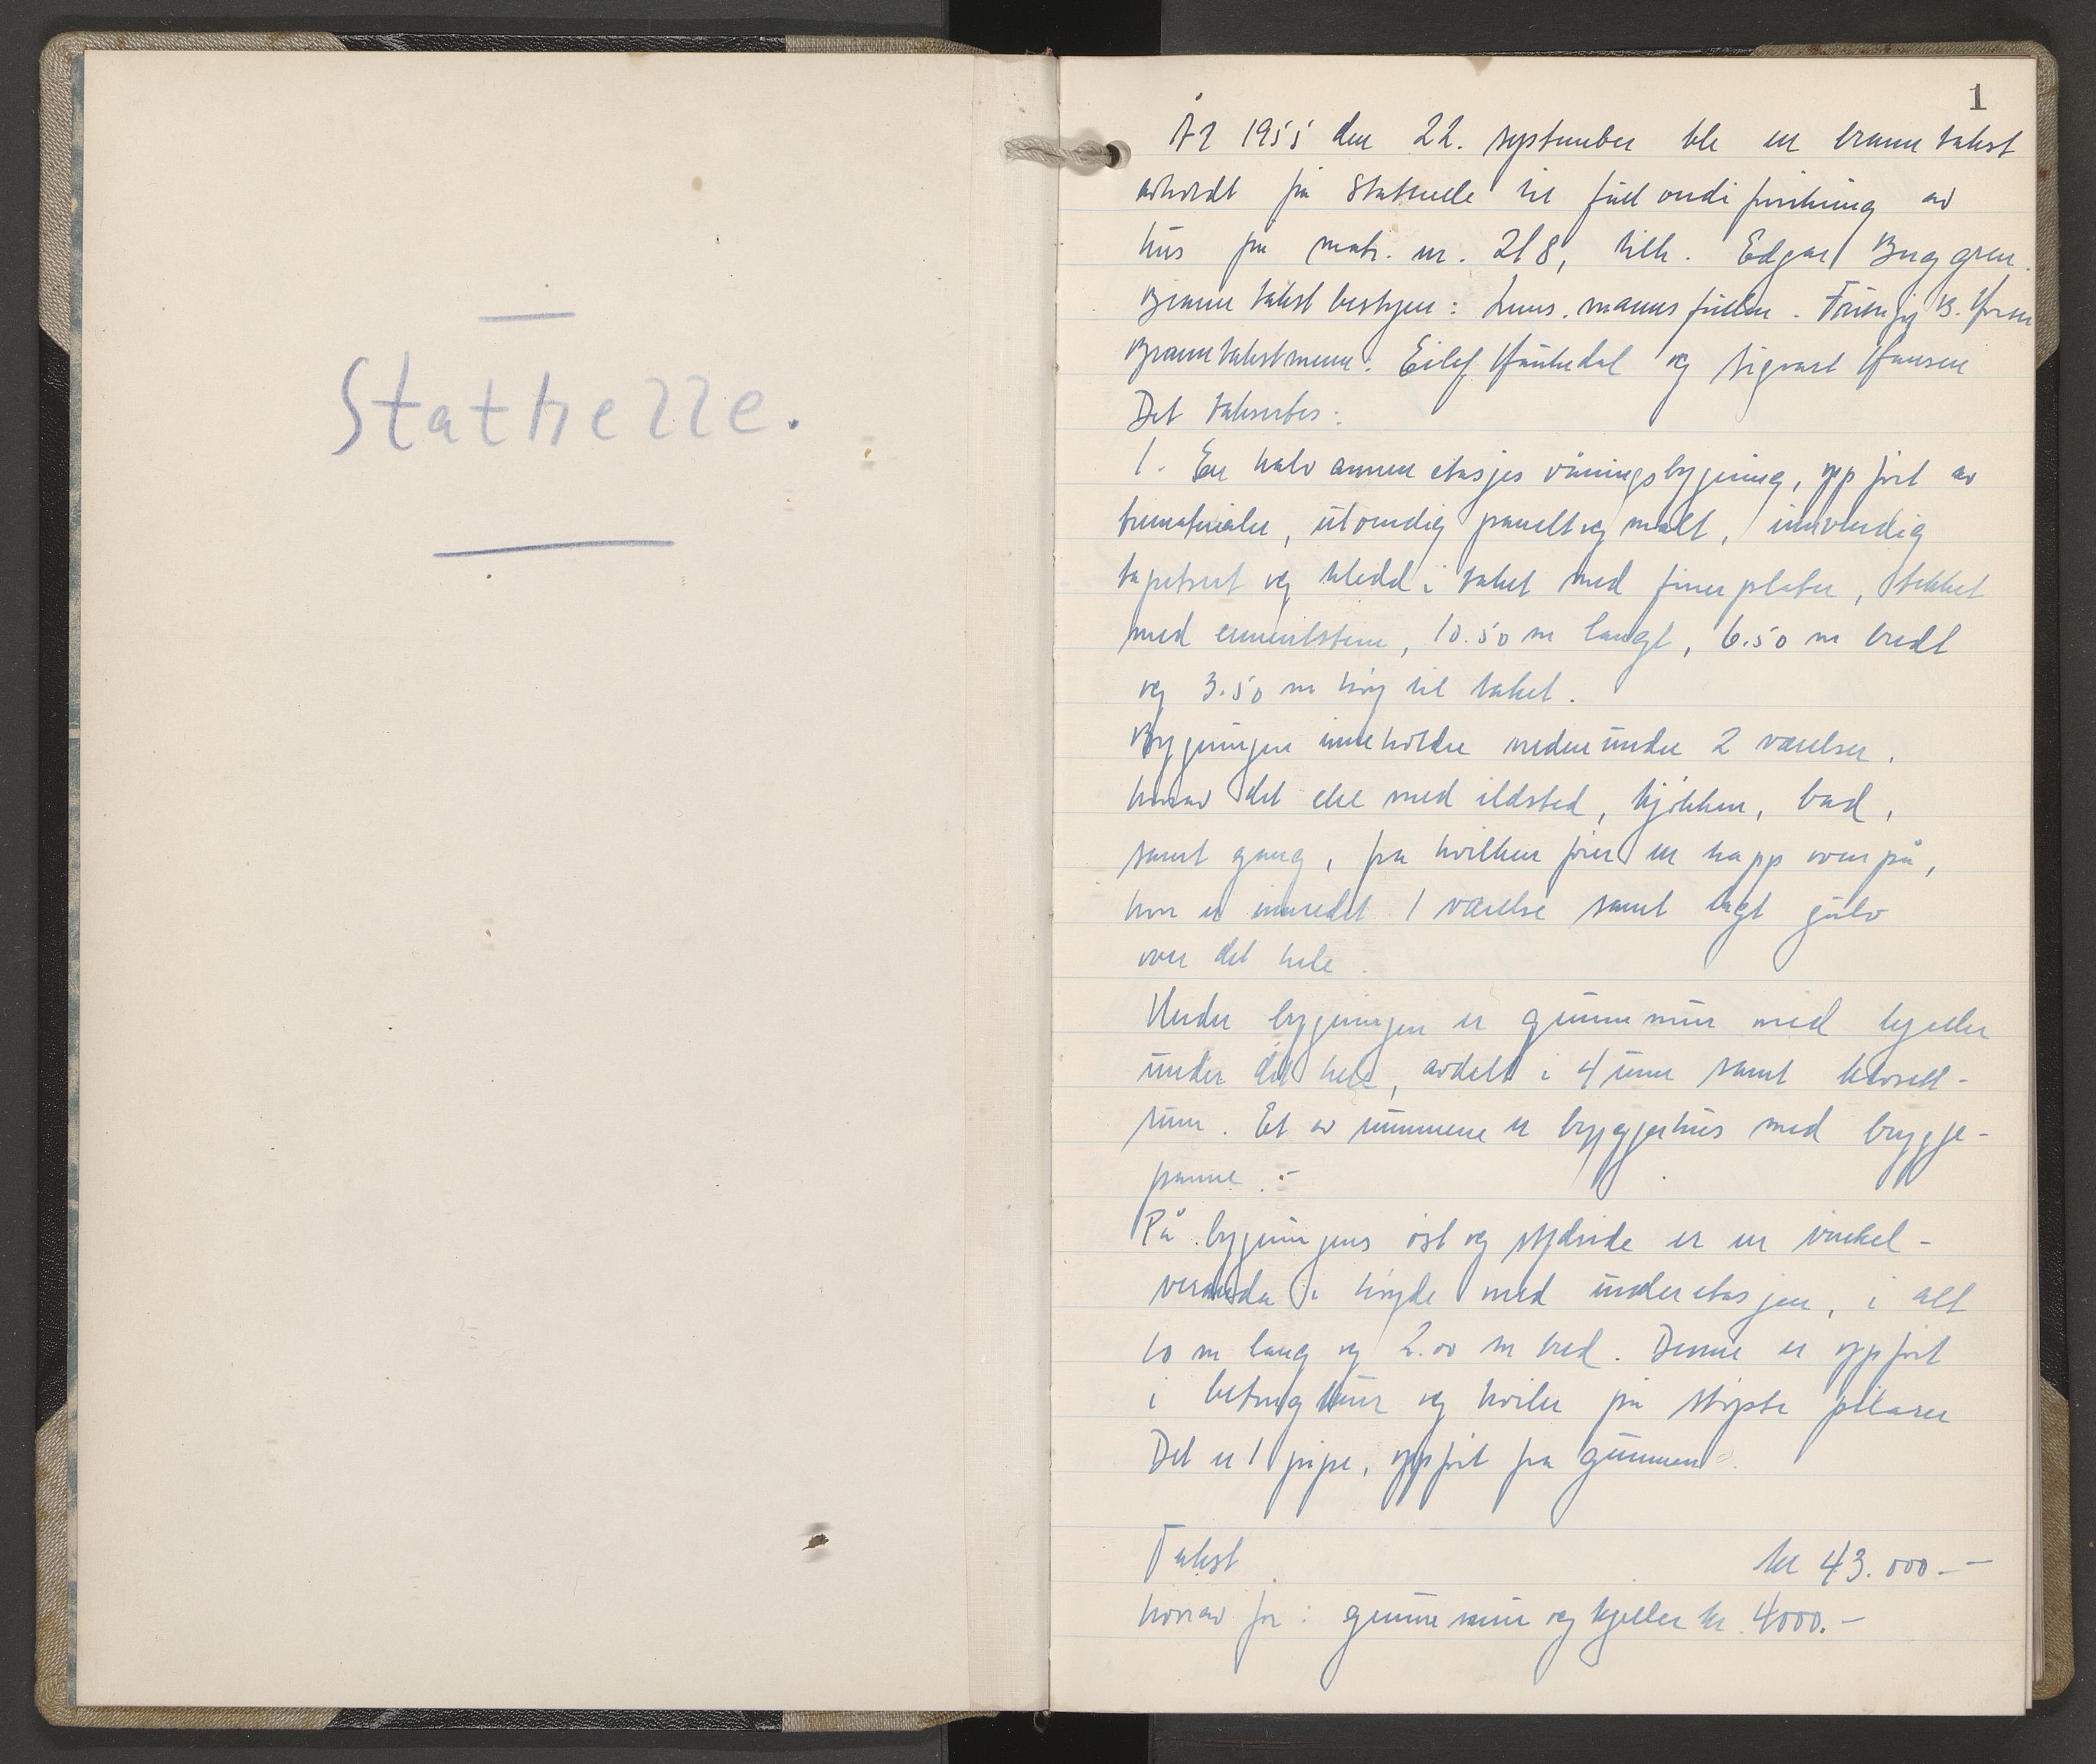 Stathelle.
1
År 1955 den 22. september ble en branntakst
avholdt på Stathelle til full verdi forsikring av
hus på matr. nr. 218, tilh. Edgar Berggren.
Branntakstbestyrer: Lens.mannsfullm.
Branntakstmenn: Eilef Haukedal og Sigvart Hansen
Det taksertes:
1. En halv annen etasjes våningsbygning, oppført av
trematerialer, utvendig panelt og malt, innvendig
tapetsert og kledd i taket med finerplater, tekket
med cementstein, 10.50 m langt, 6.50 m bredt
og 3.50 m høy til taket.
Bygningen inneholder nedenunder 2 værelser.
hvorav det ene med ildsted, kjøkken, bad,
samt gang, fra hvilken fører en trapp ovenpå,
hvor er innredet 1 værelse samt lagt gulv
over det hele.
Under bygningen er grunnmur med kjeller
under det hele, avdelt i 4 rum samt klosett-
rum. Et av rummene er bryggerhus med brygge-
panne.-
På bygningens øst og sydside er en vinkel-
veranda i høyde med underetasjen, i alt
10 m lang og 2.00 m bred. Denne er oppført
i betong og hviler på støpte pilarer
Det er 1 pipe, oppført fra grunnen.
Takst kr 43.000.-
hvorav for: grunnmur og kjeller kr 4000.-